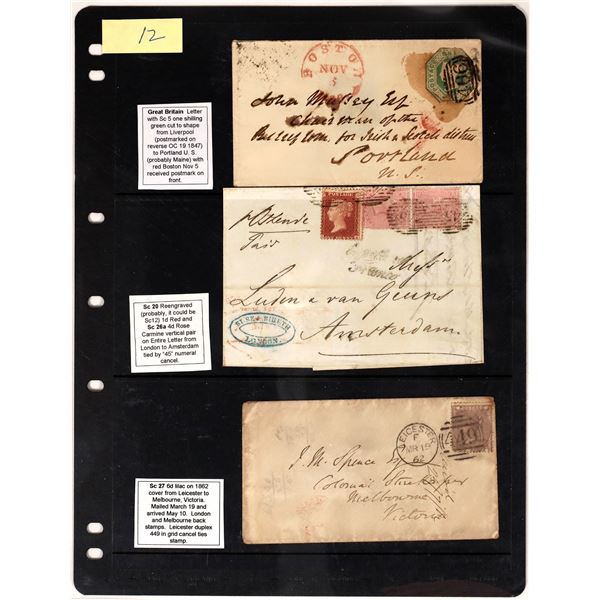 12
Great Britain Letter
with Sc 5 one shilling
green cut to shape
from Liverpool
(postmarked on
reverse OC 19 1847)
to Portland U. S.
(probably Maine) with
red Boston Nov 5
received postmark on
front.
BOSTON
NOV
5
John Mussey Esq
Chairman of the
for Irish & Scotch
Portland
U.S.
Sc 20 Reengraved
(probably, it could be
Sc12) 1d Red and
Sc 26a 4d Rose
Carmine vertical pair
on Entire Letter from
London to Amsterdam
tied by "45" numeral
cancel.
p Ostende
Paid
Messrs
Luden & van Geuns
Amsterdam
LONDON
Sc 27 6d lilac on 1862
cover from Leicester to
Melbourne, Victoria.
Mailed March 19 and
arrived May 10. London
and Melbourne back
stamps. Leicester duplex
449 in grid cancel ties
stamp.
LEICESTER
F
MR 19
62
J. M. Spence Esq
Colonial
Melbourne
Victoria